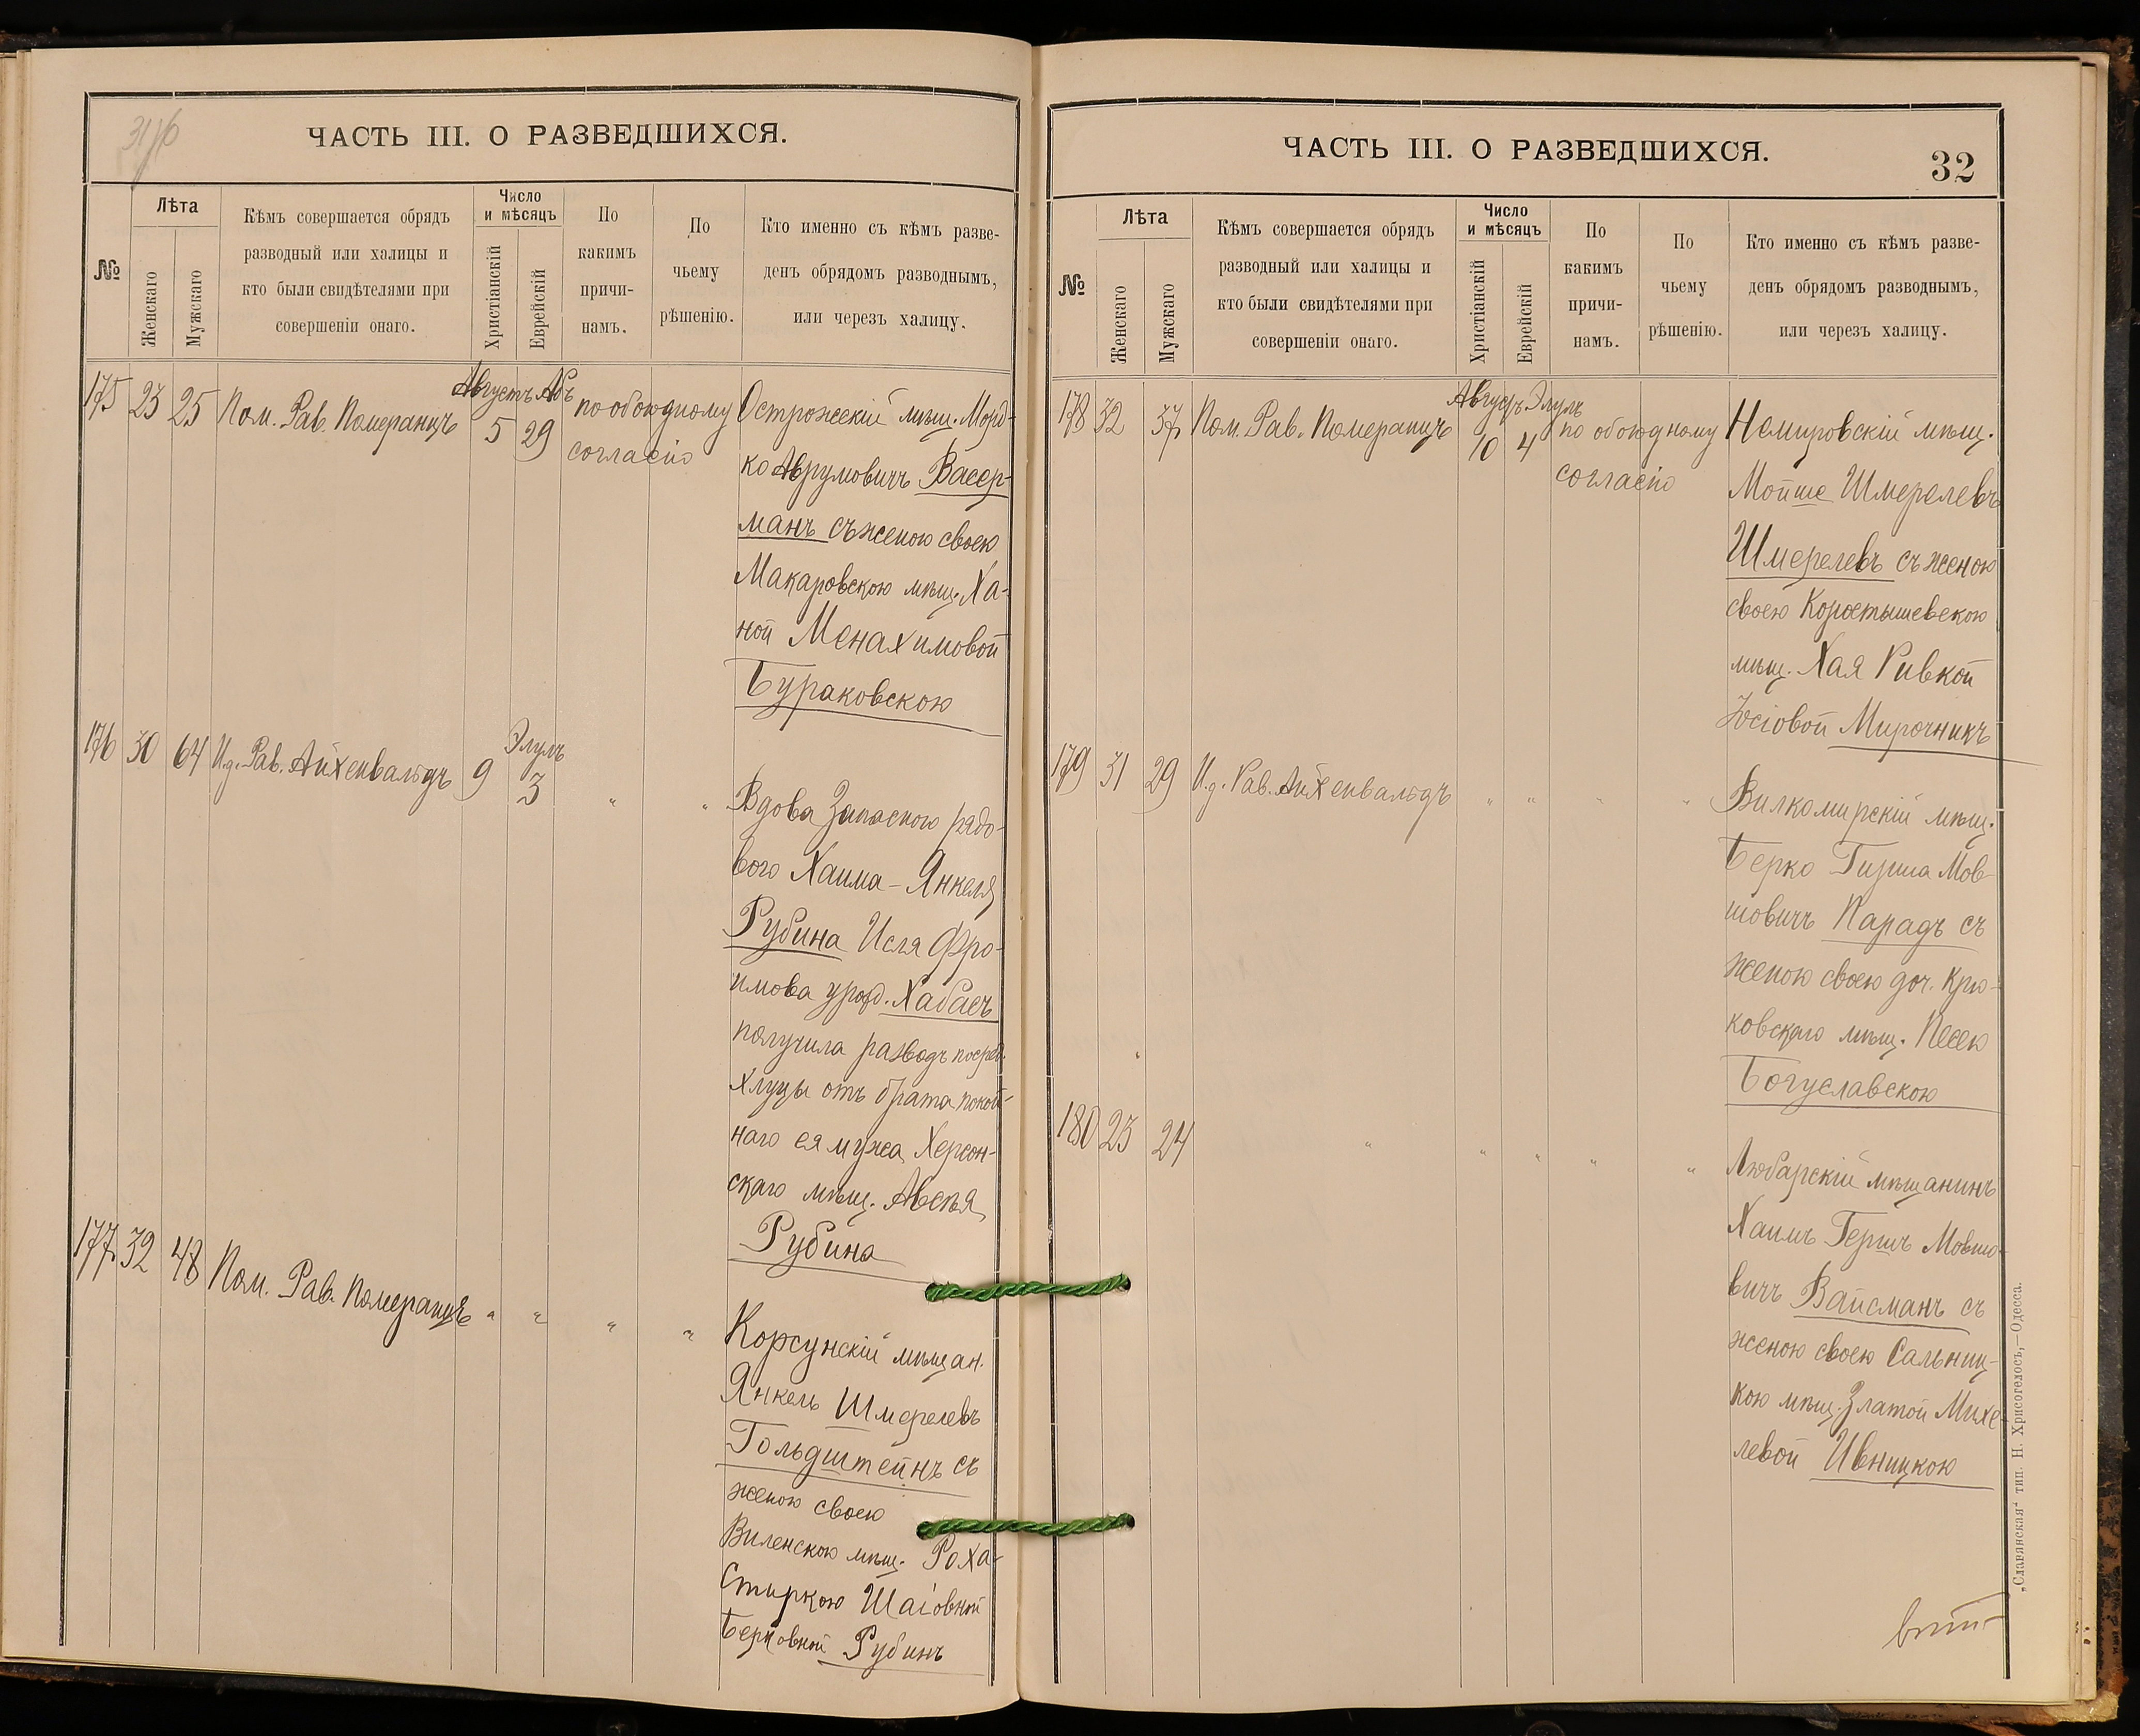 31/об
ЧАСТЬ III. О РАЗВЕДШИХСЯ.
№
Лѣта
Женскаго
Мужскаго
Кѣмъ совершается обрядъ
разводный или халицы и
кто были свидѣтелями при
совершеніи онаго.
Число
и мѣсяцъ
Христіанскій
Еврейскій
По
какимъ
причи-
намъ.
По
чьему
рѣшенію.
Кто именно съ кѣмъ разве-
денъ обрядомъ разводнымъ,
или черезъ халицу.
175 23 25 Пом. Рав. Померанцъ Августъ 5 Абъ 29 по обоюдному
согласію
Острожскій мѣщ. Морд-
ко Аврумовичъ Васер-
манъ съ женою своею
Макаровскою мѣщ. Ха-
ной Менахимовой
Бураковскою
176 30 64 И.д. Рав. Айхенвальдъ 9 Элулъ 3 " "
Вдова Запасного рядо-
вого Хаима-Янкеля
Рубина Исля Фро-
имова урожд. Хабасъ
получила разводъ посред.
хлуцы отъ брата покой-
наго ея мужа Херсон-
скаго мѣщ. Авсѣя
Рубина
177. 32 48 Пом. Рав. Померанцъ " " " "
Корсунскій мѣщан.
Янкель Шмерелевъ
Гольдштейнъ съ
женою своею
Виленскою мѣщ. Роха-
Стиркою Шаіовной
Берковной Рубинъ
ЧАСТЬ III. О РАЗВЕДШИХСЯ.
32
№
Лѣта
Женскаго
Мужскаго
Кѣмъ совершается обрядъ
разводный или халицы и
кто были свидѣтелями при
совершеніи онаго.
Число
и мѣсяцъ
Христіанскій
Еврейскій
По
какимъ
причи-
намъ.
По
чьему
рѣшенію.
Кто именно съ кѣмъ разве-
денъ обрядомъ разводнымъ,
или черезъ халицу.
178 32 37 Пом. Рав. Померанцъ Августъ 10 Элулъ 4 по обоюдному
согласію
Немировскій мѣщ.
Мойше Шмерелевъ
Шмерелевъ съ женою
своею Коростышевскою
мѣщ. Хая Ривкой
Іосіовой Мирочникъ
179 31 29 И.д. Рав. Айхенвальдъ " " " "
Вилкомирскій мѣщ.
Берко Гирша Мов-
шовичъ Парадъ съ
женою своею доч. Крю-
ковскаго мѣщ. Песею
Богуславскою
180 23 24 " " " " "
Любарскій мѣщанинъ
Хаимъ Гершъ Мовшо-
вичъ Вайсманъ съ
женою своею Сальниц-
кою мѣщ. Златой Михе-
левой Ивницкою
„Славянская“ тип. Н. Хрисогелосъ,—Одесса.